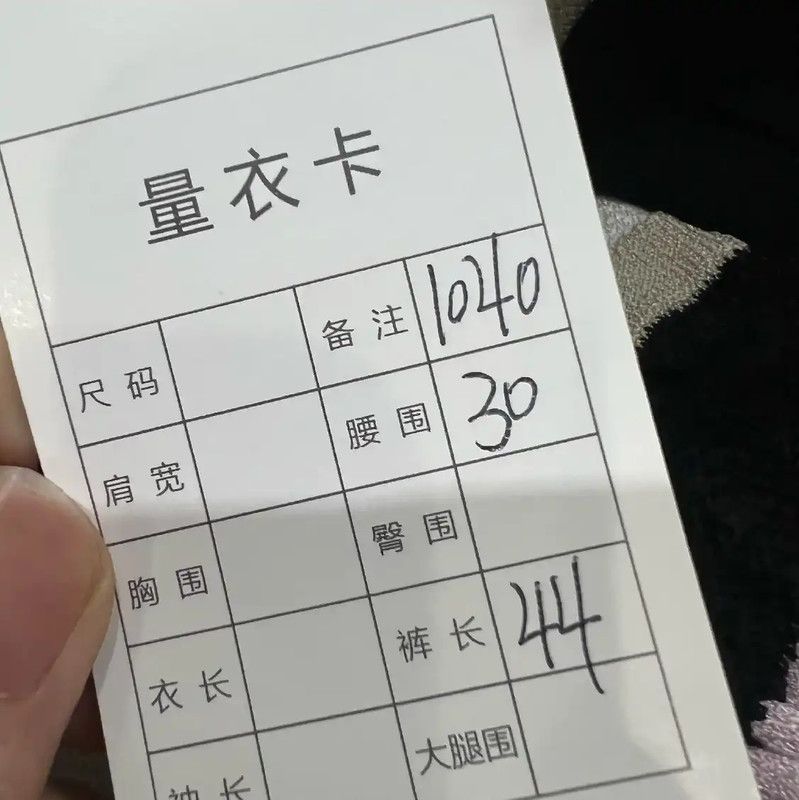 量衣卡
尺码 备注 1040
肩宽 腰围 30
胸围 臀围
衣长 裤长 44
袖长 大腿围